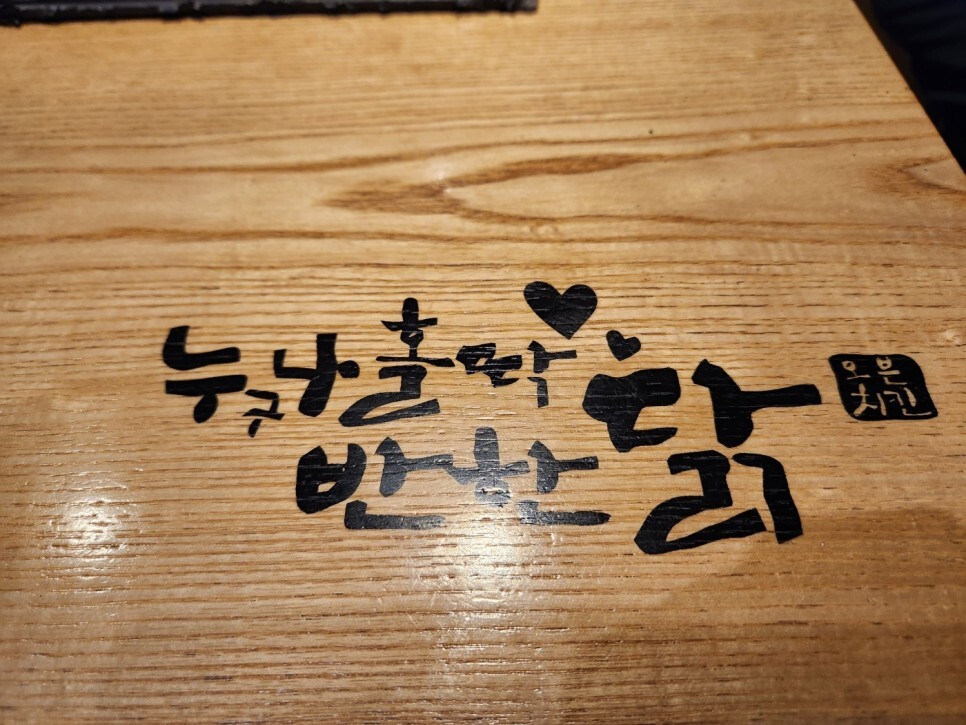 누구나 홀딱
반한 닭
오븐
치킨